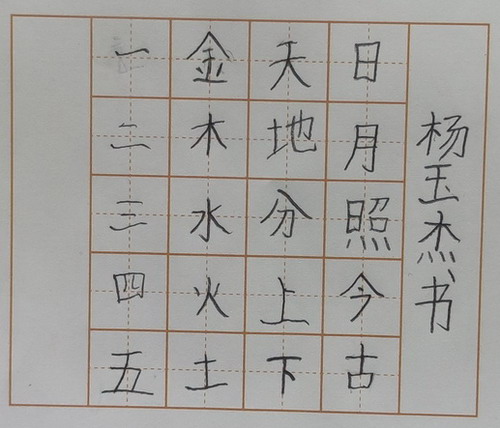 一二三四五
金木水火土
天地分上下
日月照今古
杨玉杰书